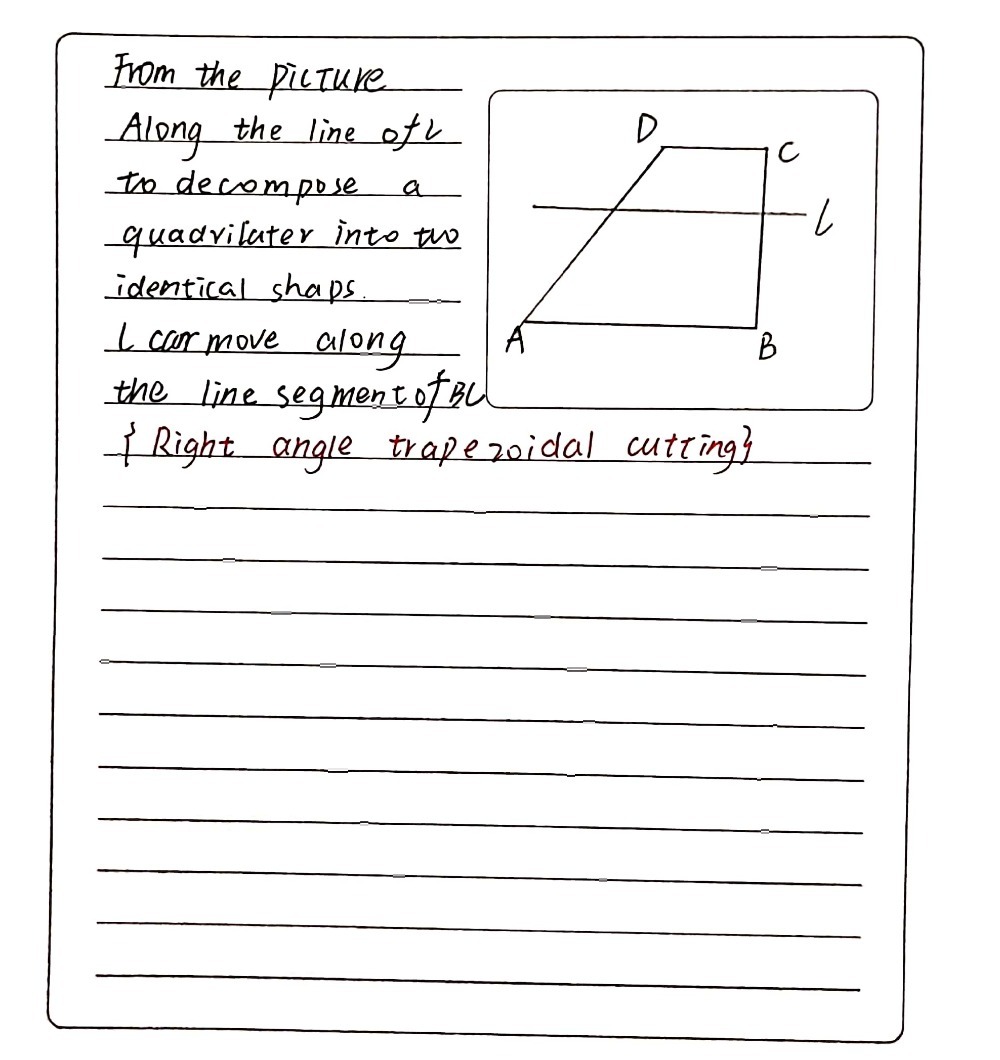 From the picture
Along the line of L
to decompose a
quadrilater into two
identical shaps.
L can move along
the line segment of BC
{Right angle trapezoidal cutting}
D
C
l
A
B